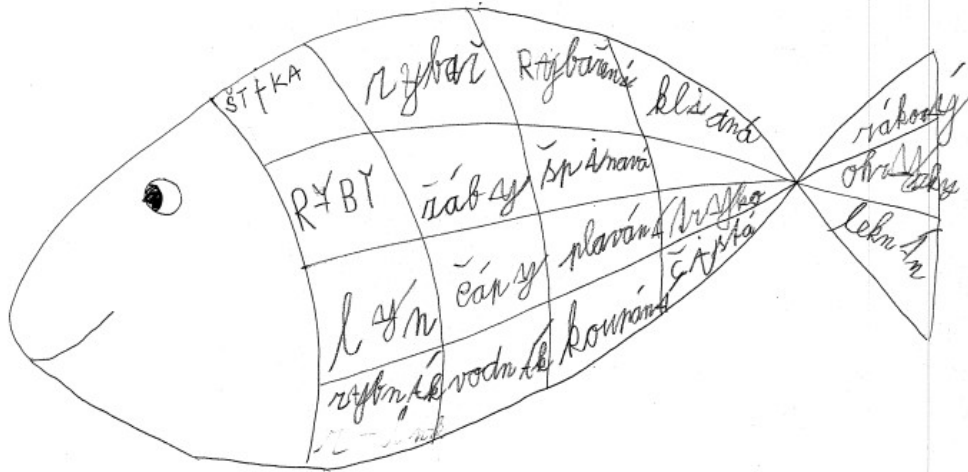 ŠTYKA rybař Rybaření klidná
RYBY žáby špinavá
lyn čápy plavání
čistá
rybník vodník koupání
rákosy
leknín